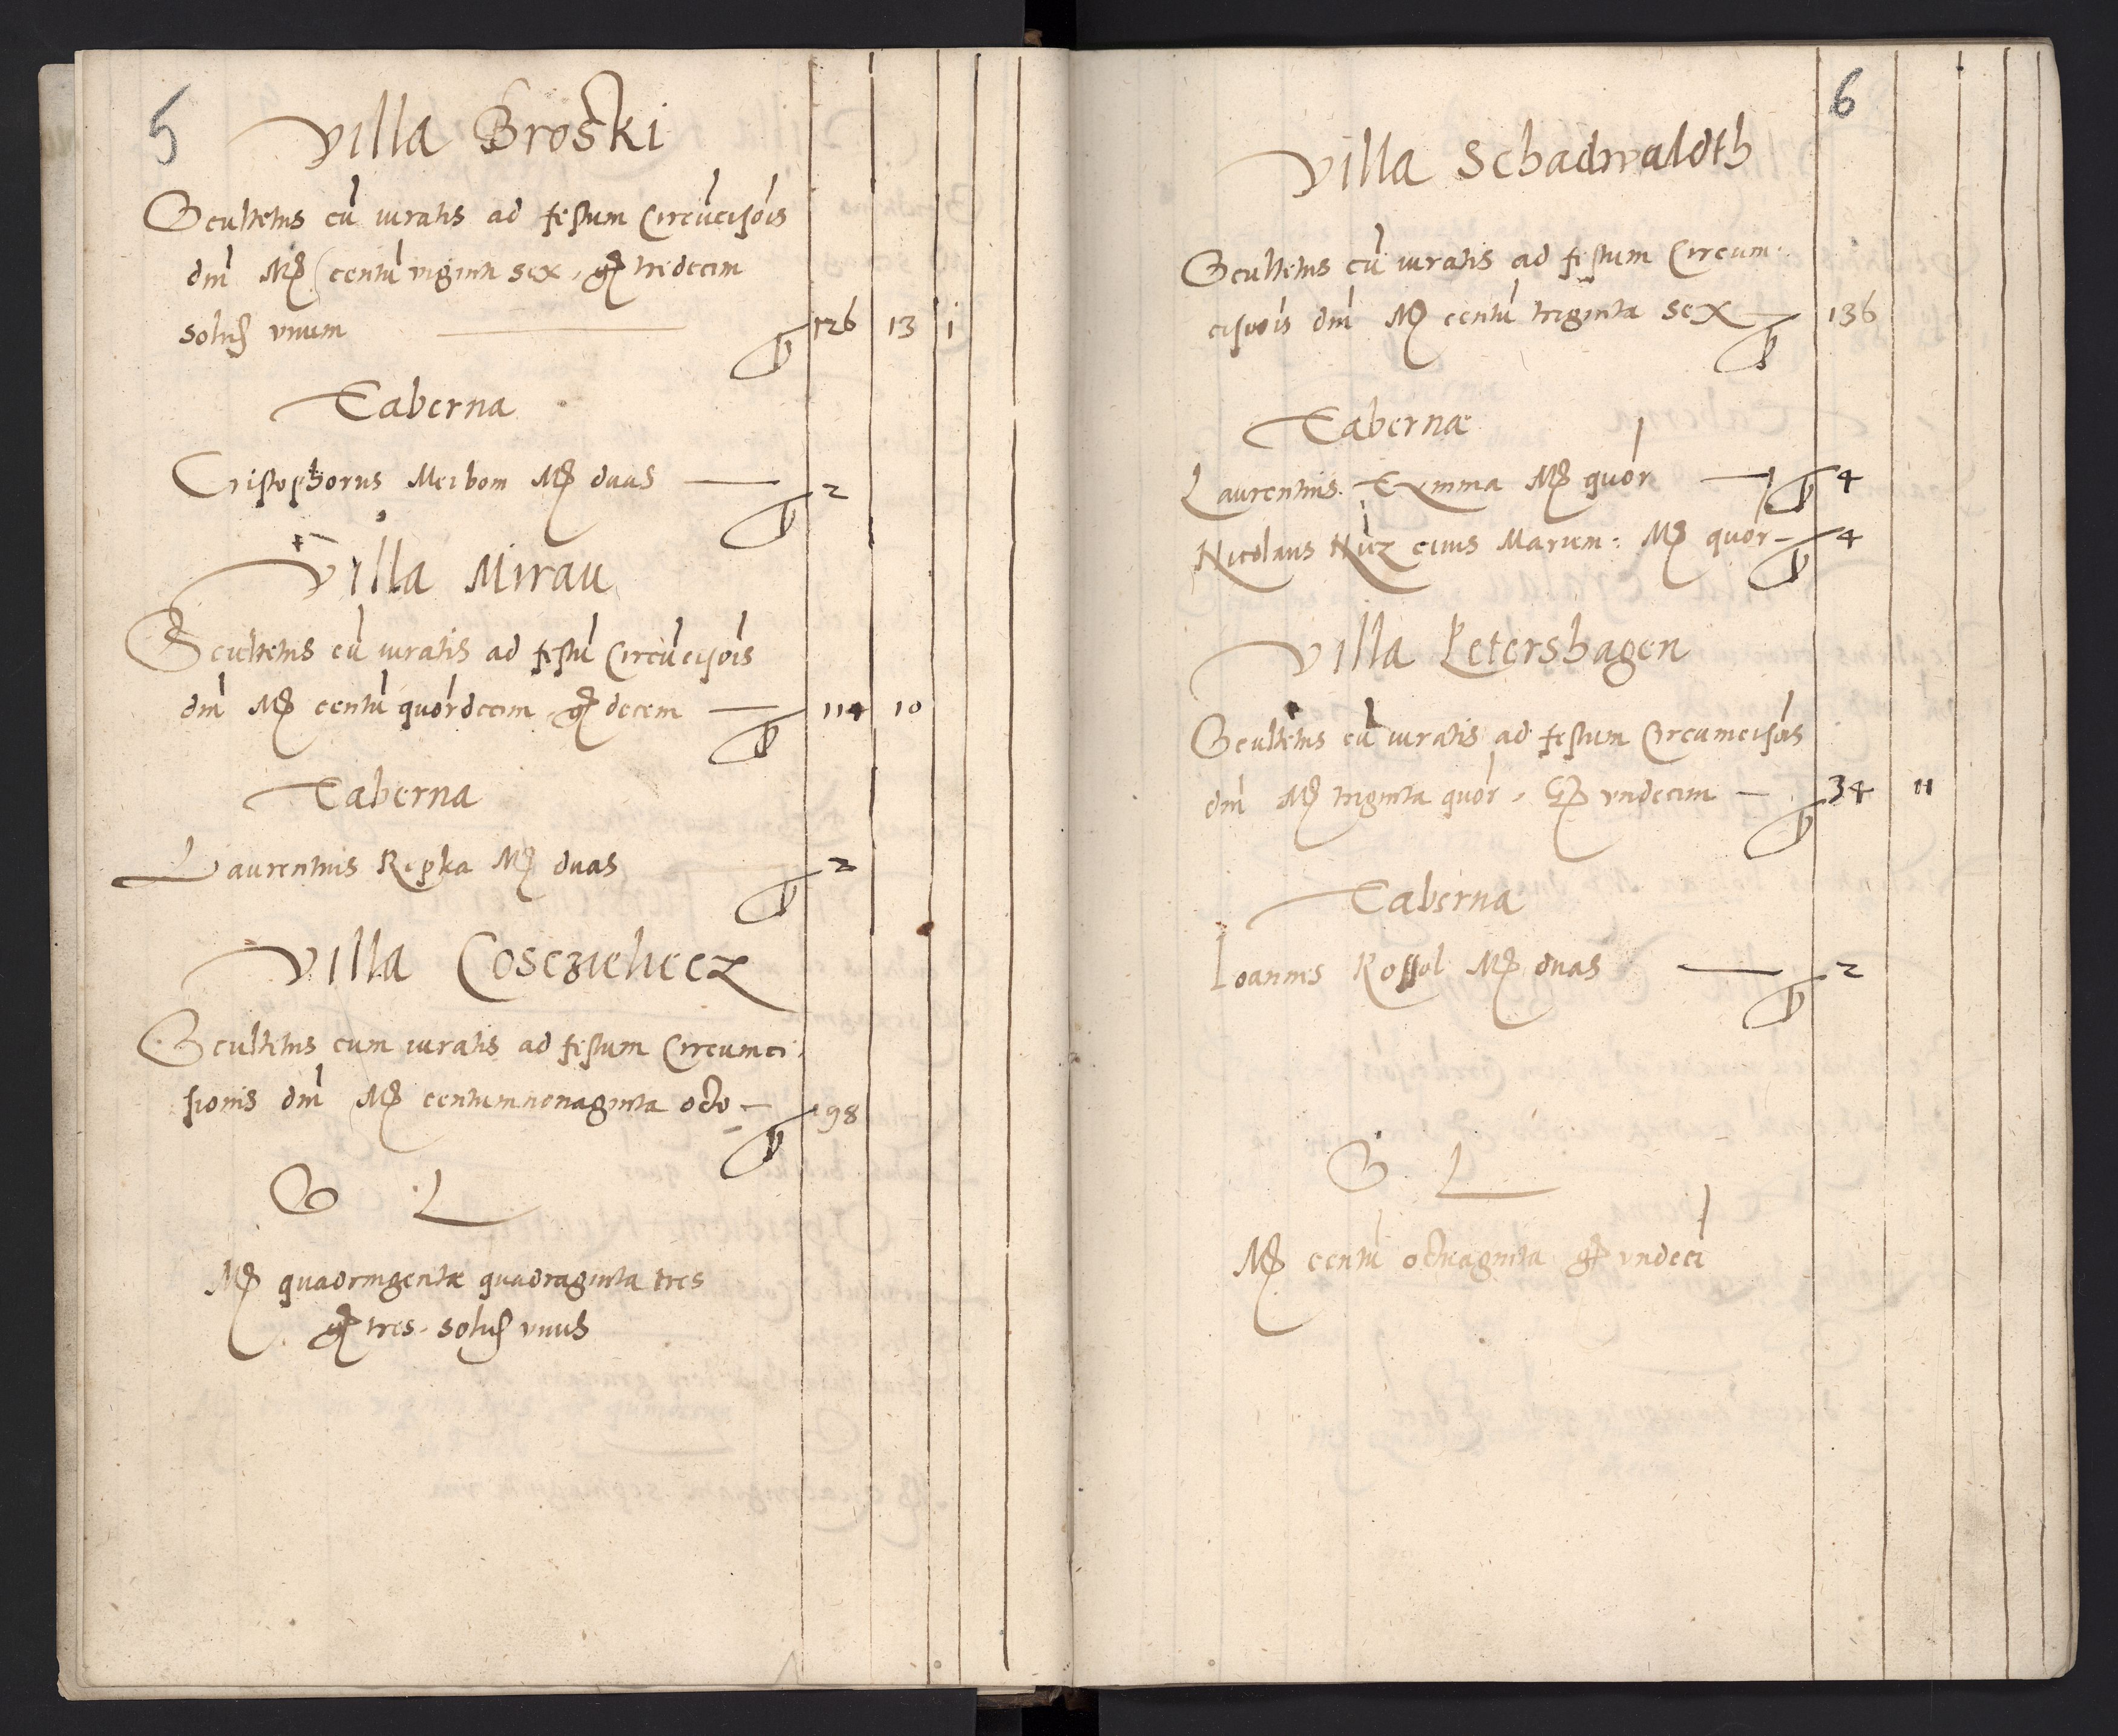 5
Villa Broski
Scultetus cū iuratis ad festum Circūcisōis
dni Mȝ centū viginti sex, gȝ tredecim
solidȝ vnum 126 13 1
Taberna
Cristophorus Meibom Mȝ duas 2
Villa Mirau
Scultetus cū iuratis ad festū Circūcisōis
dni Mȝ centū quordecim, gȝ decem 114 10
Taberna
Laurentius Repka Mȝ duas 2
Villa
Scultetus cum iuratis ad festum Circumci
sionis dni Mȝ centum nonaginta octo 198
S L
Mȝ quadringentæ quadraginta tres
gȝ tres. solidȝ vnus
6
Villa Schadwaldth
Scultetus cū iuratis ad festum Circum:
cisiois dni Mȝ centū triginta sex 136
Tabernæ
Laurentius Mȝ quor 4
Nicolaus civis Marien: Mȝ quor 4
Villa Petershagen
Scultetus cū iuratis ad festum Circumcisōis
dni Mȝ triginta quor, Gȝ vndecim 34 11
Taberna
Ioannes Rossol Mȝ duas 2
S L
Mȝ centū octuaginta gȝ vndeci